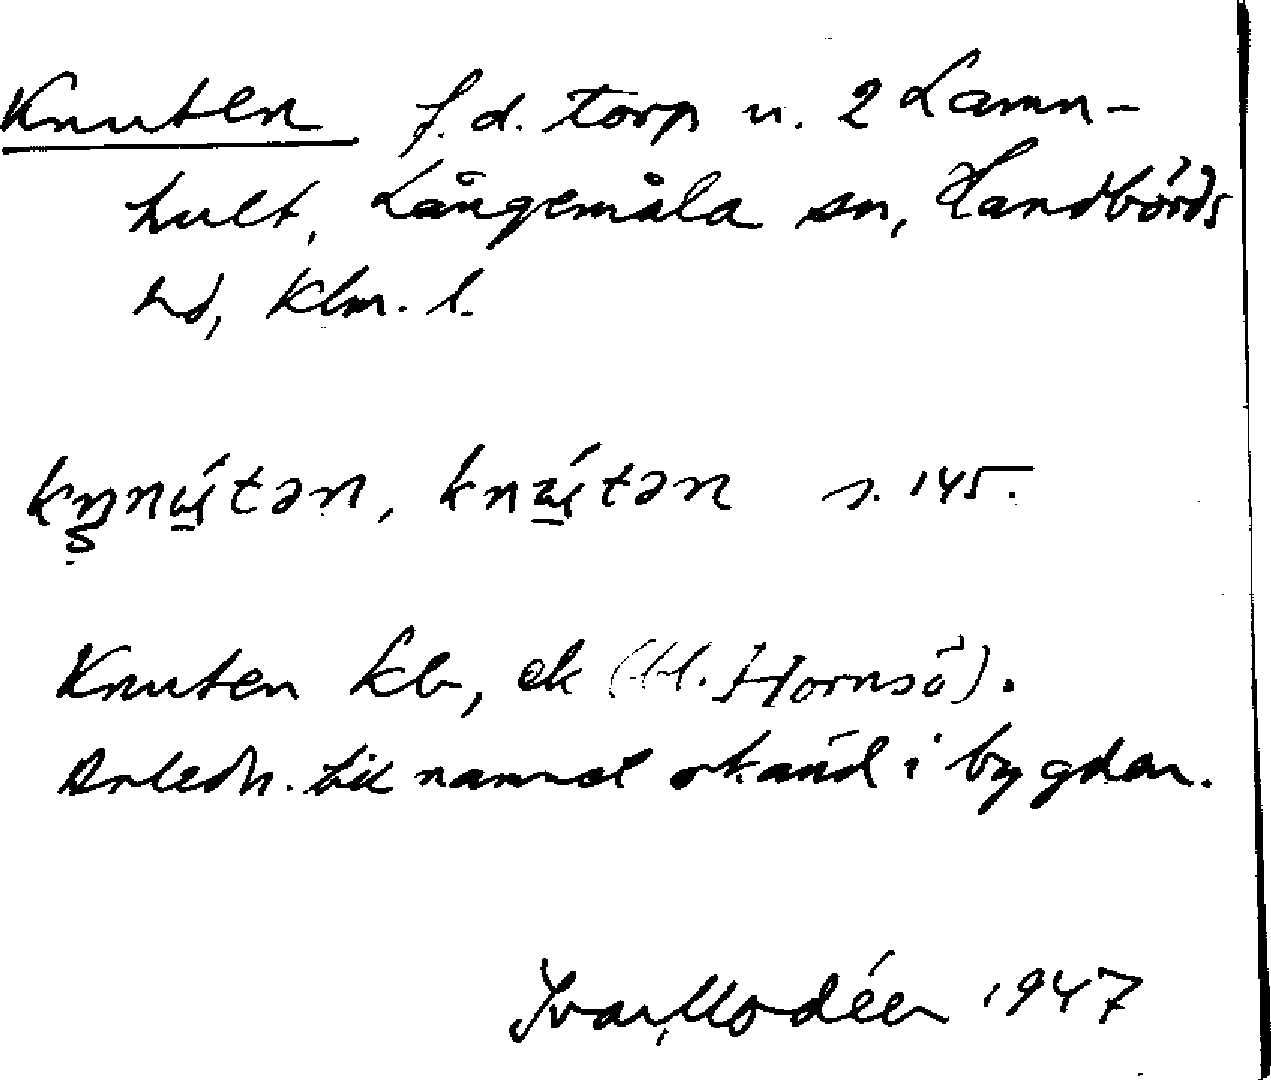 Knuten f.d. torp u. 2 Lamn-
hult, Långemåla sn, Handbörds
hd, Klm. l.
knútən, s. 145.
Knuten kb, ek (bl. Hornsö).
Anledn. till namnet okänd i bygden.
Ivar Modéer 1947